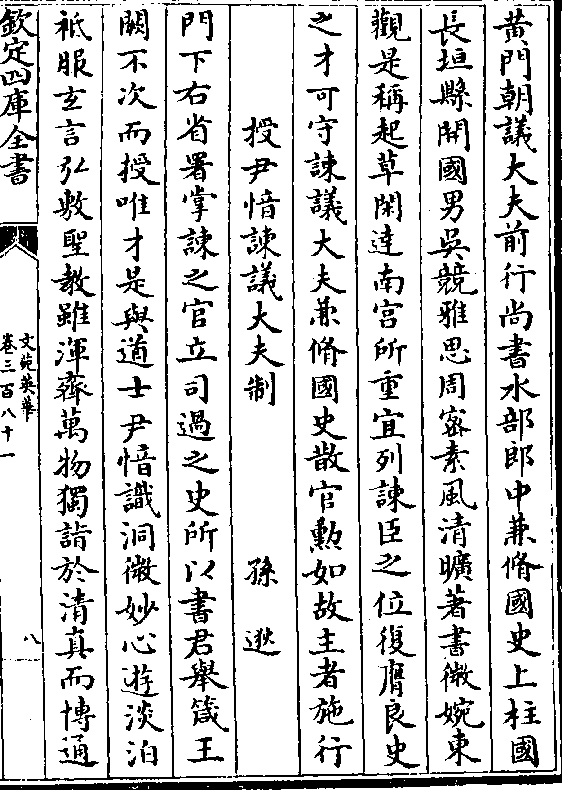 黄門朝議大夫前行尚書水部郎中兼脩國史上柱國
長垣縣開國男吳競雅思周宻素風清曠著書微婉東
觀是稱起草閑達南宫所重宜列諫臣之位復膺良史
之才可守諫議大夫兼脩國史散官勲如故主者施行
授尹愔諫議大夫制 孫逖
門下右省署掌諫之官立司過之史所以書君舉箴王
闕不次而授唯才是與道士尹愔識洞微妙心遊淡泊
祗服玄言弘敷聖教雖渾齊萬物獨詣於清真而博通
欽定四庫全書
文苑英華
卷三百八十一
八